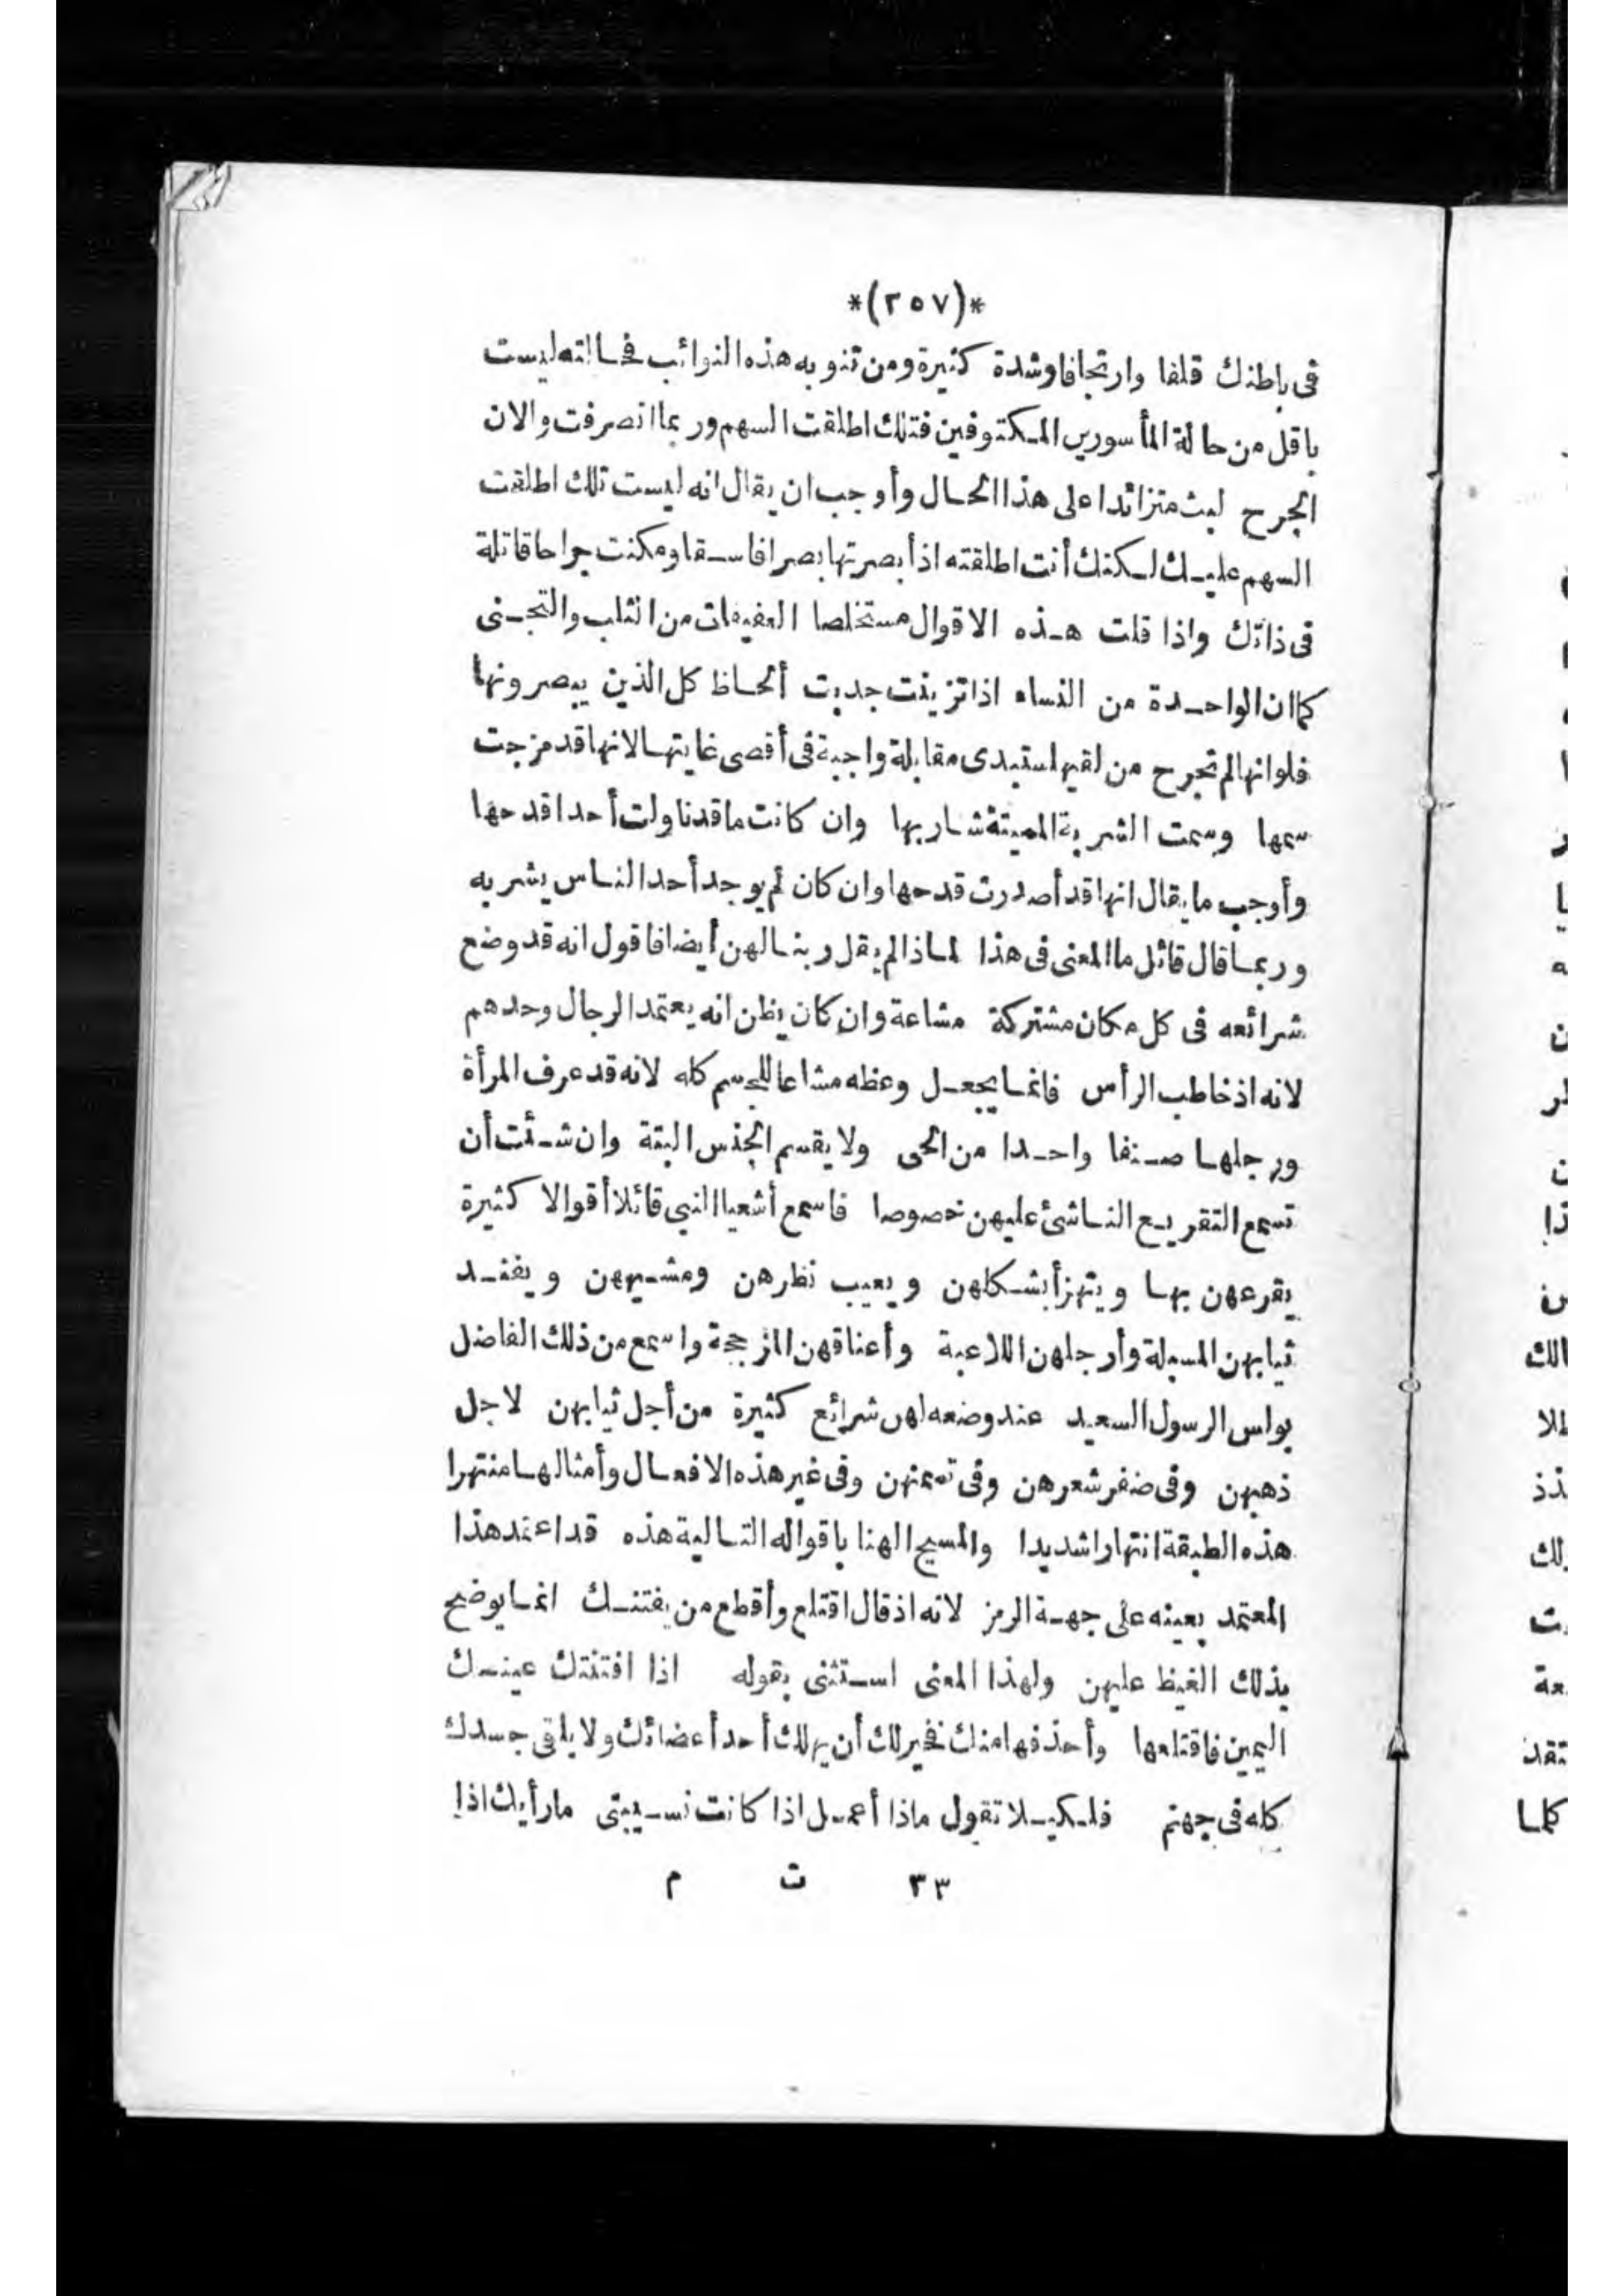 *(٢٥٧)*
فى باطنك قلقا وارتجافا وشدة كثيرة ومن تنوبه هذه النوائب فحالته ليست
باقل من حالة المأسورين المكتوفين فتلك اطلقت السهم وربما انصرفت والان
الجرح لبث متزائدا على هذا الحال وأوجب ان يقال انه ليست تلك اطلقت
السهم عليك لكنك أنت اطلقته اذ أبصرتها بصرا فاسقا ومكنت جراحا قاتلة
فى ذاتك واذا قلت هذه الاقوال مستخلصا العفيفات من الثلب والتجنى
كما ان الواحدة من النساء اذا تزينت جذبت ألحاظ كل الذين يبصرونها
فلو انها لم تجرح من لقيها ستبدى مقابلة واجبة فى أقصى غايتها لانها قد مزجت
سمها وسمت الشربة المميتة شاربها وان كانت ما قد ناولت أحدا قدحها
وأوجب ما يقال انها قد أصدرت قدحها وان كان لم يوجد أحد الناس يشربه
وربما قال قائل ما المعنى فى هذا لماذا لم يقل ربنا لهن أيضا فاقول انه قد وضع
شرائعه فى كل مكان مشتركة مشاعة وان كان يظن انه يعتمد الرجال وحدهم
لانه اذ خاطب الرأس فانما يجعل وعظه مشاعا للجسم كله لانه قد عرف المرأة
ورجلها صنفا واحدا من الحى ولا يقسم الجنس البتة وان شئت أن
تسمع التقريع الناشئ عليهن خصوصا فاسمع أشعيا النبى قائلا أقوالا كثيرة
يقرعهن بها ويتهزأ بشكلهن ويعيب نظرهن ومشيهن ويفند
ثيابهن المسبلة وأرجلهن اللاعبة وأعناقهن المزججة واسمع من ذلك الفاضل
بولس الرسول السعيد عند وضعه لهن شرائع كثيرة من أجل ثيابهن لاجل
ذهبهن وفى ضفر شعرهن وفى تسمنهن وفى غير هذه الافعال وأمثالها منتهرا
هذه الطبقة انتهارا شديدا والمسيح الهنا باقواله التالية هذه قد اعتمد هذا
المعتمد بعينه على جهة الرمز لانه اذ قال اقتلع وأقطع من يفتنك انما يوضح
بذلك الغيظ عليهن ولهذا المعنى استثنى بقوله اذا افتنتك عينك
اليمين فاقتلعها وأحذفها منك فخير لك أن يهلك أحد أعضائك ولا يلقى جسدك
كله فى جهنم فلكيلا تقول ماذا أعمل اذا كانت نسيبتى ما رأيك اذا
٣٣ ت م